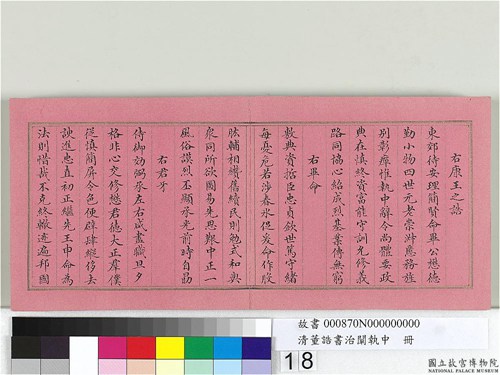 右康王之誥
東郊待安理簡賢命畢公懋德
勤小物四世元老崇淵應務旌
別彰癉惟執中辭令尚體要政
典在慎終資富能守訓允修義
路同協心紹成烈基業傳無窮
右畢命
敷典資喆臣忠貞欽世篤守緒
每憂危若涉春氷促爰命作股
肱輔相纘舊績民則勉式和與
衆同所欲圖易先思艱中正一
風俗謨烈丕顯承光前時自勗
右君牙
侍御訪弼承左右咸盡職旦夕
格非心交修懋君德大正羣僕
從慎簡屏令色便辟肆縱侈去
諛進忠直初正繼先王申命為
法則惜哉不克終轍迹遍邦國
故書 000870N000000000
清董誥書治闡執中 冊
18
國立故宮博物院
NATIONAL PALACE MUSEUM